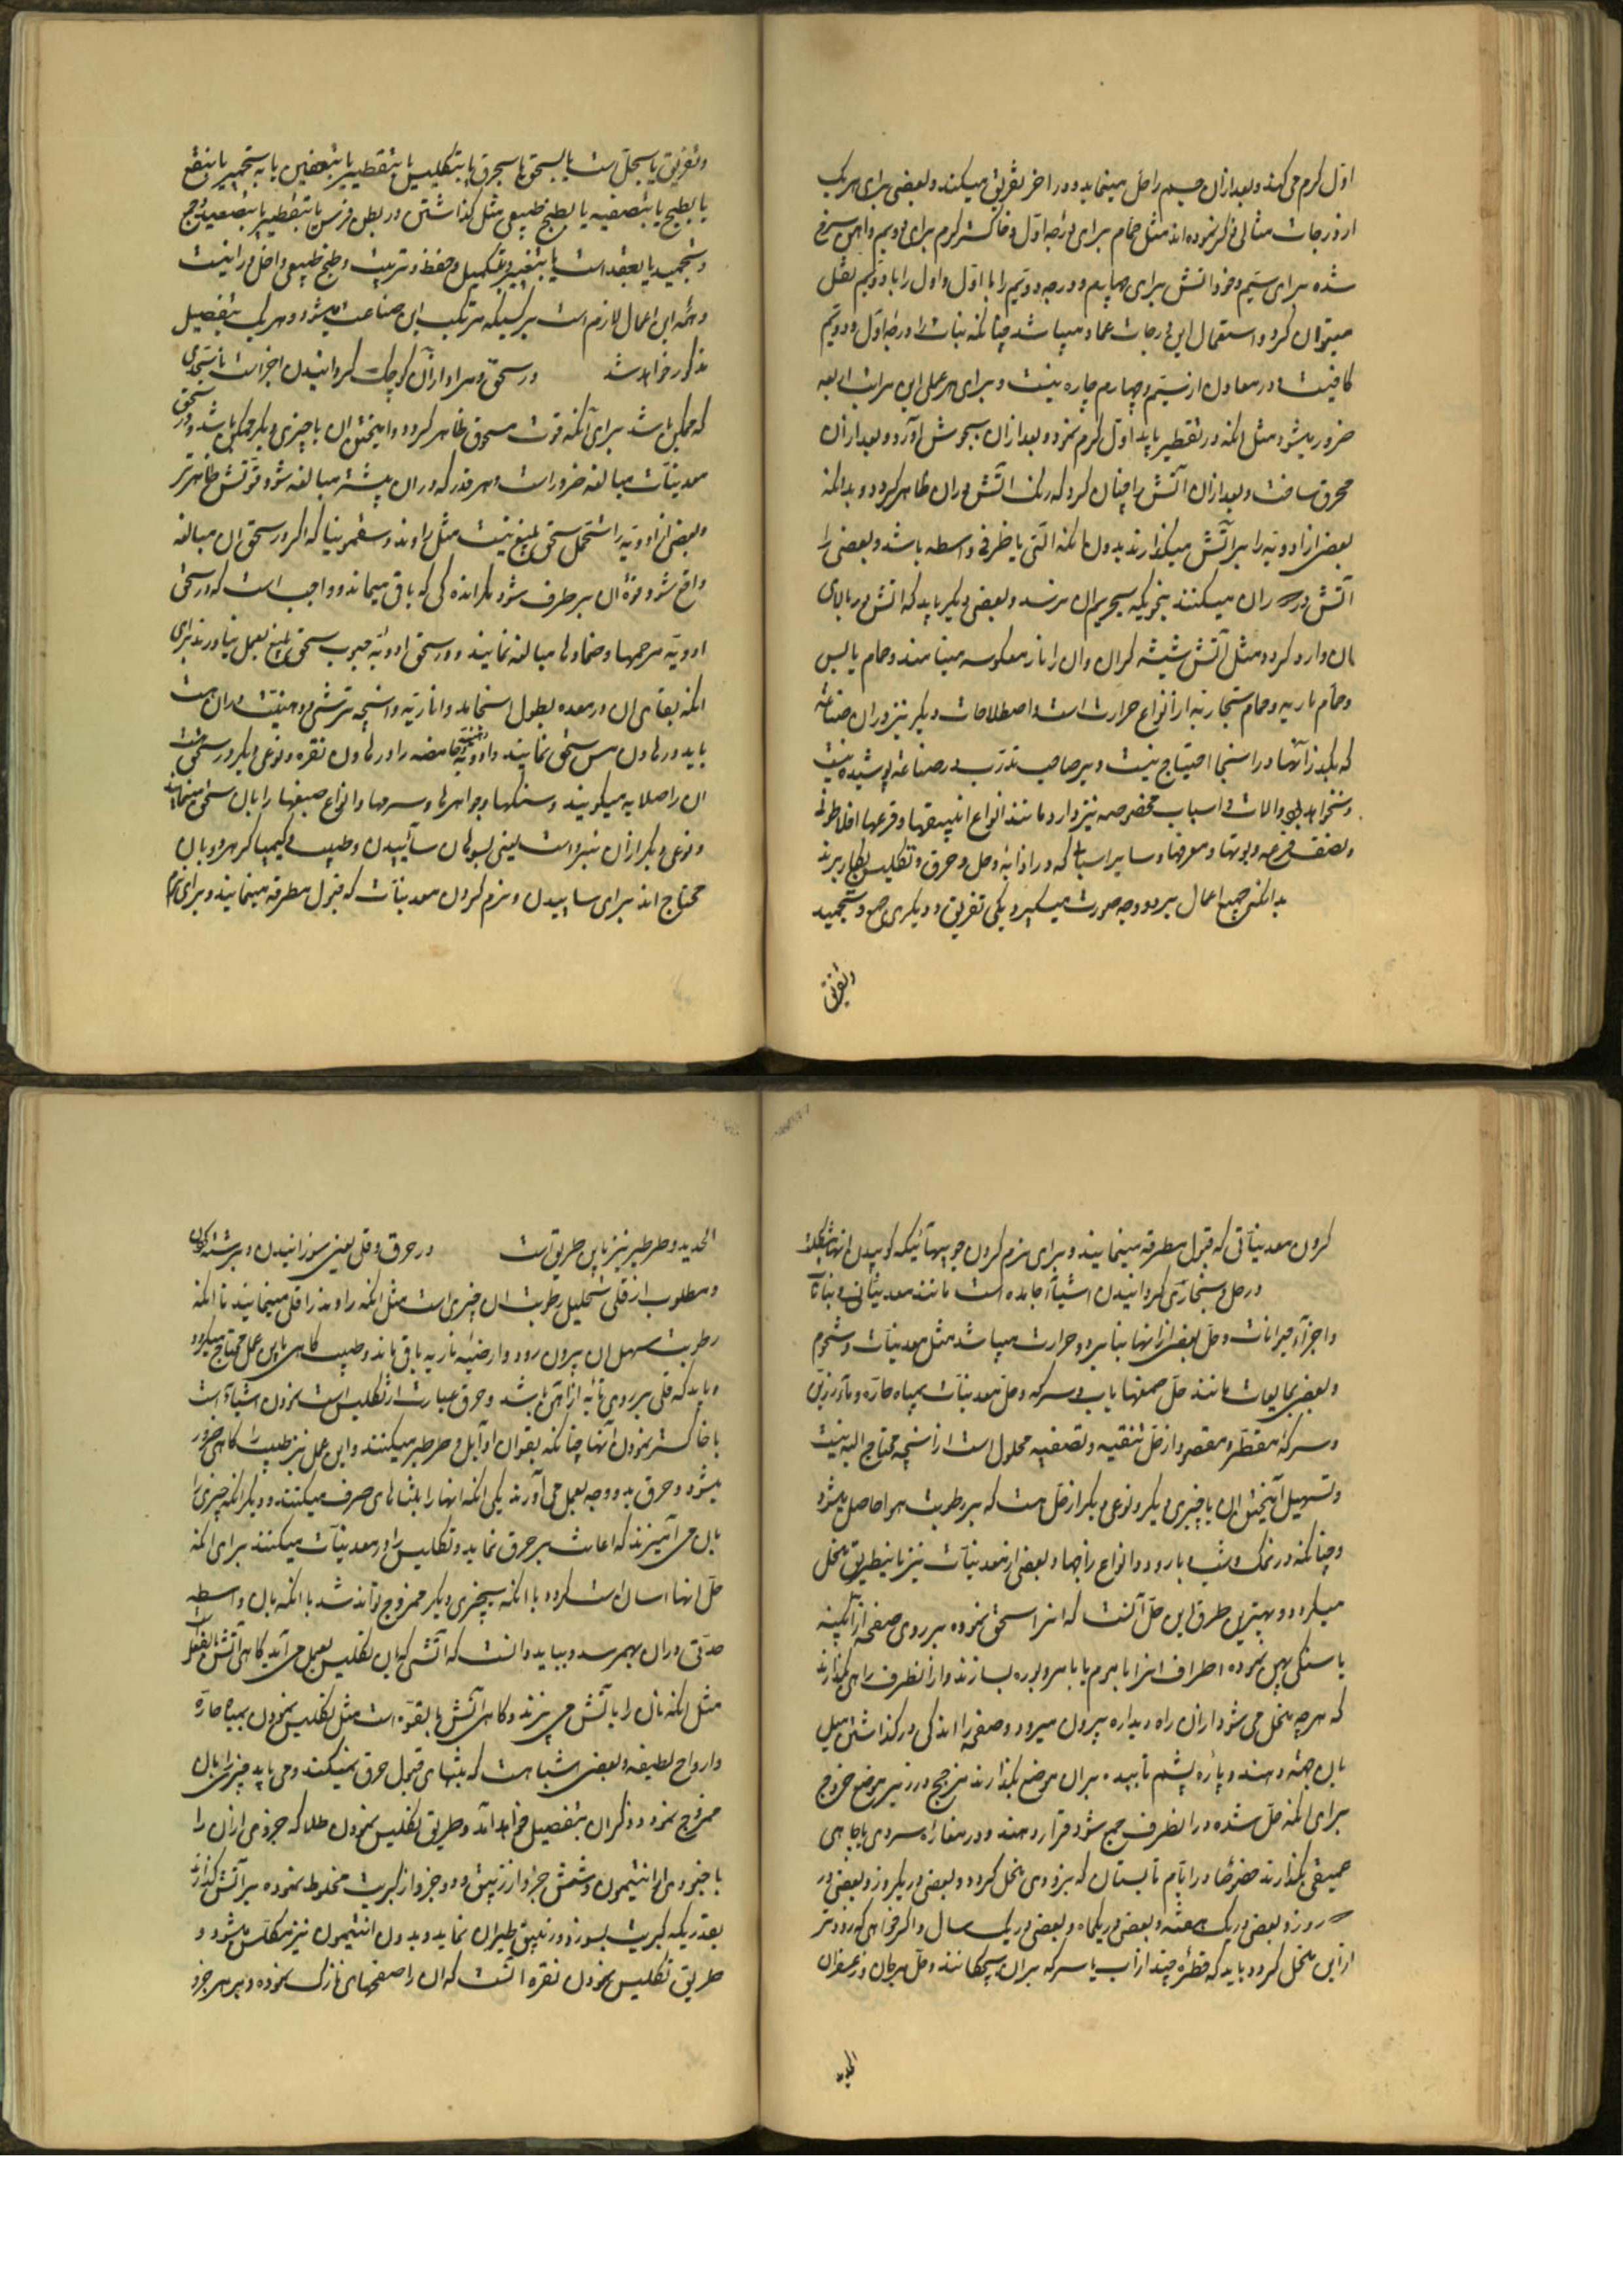 اول کرم می کند و بعد از ان جسم را حل مینماید و در اخر تفریق میکند و بعضی برای هر یک
از درجات مثالی ذکر نموده اند مثل حمام برای درجه اول و خاکستر کرم برای دویم و اهن سرخ
شده برای سیم و خود اتش برای چهارم و درجه دویم را با اول و اول را با دویم نقل
میتوان کرد و استعمال این درجات عماد میباشد چنانکه نبات را درجه اول و دویم
کافیست و در معادن از سیم و چهارم چاره نیست و برای هر عملی این مراتب اربعه
ضرور میشود مثل انکه در تقطیر باید اول کرم نمود و بعد از ان بجوش اورد و بعد از ان
محرق ساخت و بعد از ان اتش را چنان کرد که رنک اتش در ان ظاهر کردد و بدانکه
بعضی از ادویه را بر اتش میکذارند بدون انکه التی یا ظرفی واسطه باشد و بعضی را
اتش در ان میکنند بنحویکه بجرم ان نرسد و بعضی دیکر باید که اتش در بالای
ان وارد کردد مثل اتش شیشه کران و ان را نار معکوسه مینامند و حمام یابس
و حمام ماریه و حمام بخاریه از انواع حرارت است و اصطلاحات دیکر نیز در ان صناعة
که بذکر انها در اینجا احتیاج نیست و بر صاحب تدرب در صناعة پوشیده نیست
و نخواهد بود والات و اسباب مخصوصه نیز دارد مانند انواع انبیقها و قرعها افلاطونی
و نصف قرعه و بوتها و مغرفها و سایر اسباب که در اذابه و حل و حرق و تکلیس بکار برند
بدانکه جمیع اعمال بر دو وجه صورت میکیرد یکی تفریق و دیکری جمع و تجمید
وتفریق
وتفریق یا بحل است یا بسحق یا بحرق یا بتکلیس یا بتقطیر یا بتعفین یا به تخمیر یا بنقع
یا بطبخ یا بتصفیه یا بطبخ طبیعی مثل کذاشتن در بطن فرس یا بتقطیر یا بتصعید و جمع
و تجمید یا بعقد است یا بتغییر و تکمیل و حفظ و تربیت و طبخ طبیعی داخل در انست
و همه این اعمال لازم است بر کسیکه مرتکب این صناعت میشود و هر یک بتفصیل
مذکور خواهد شد در سحق و مراد از ان کوچک کردانیدن اجزاست تا بحدی
که ممکن باشد برای انکه قوت مسحوق ظاهر کردد و امیختن ان با چیزی دیکر ممکن باشد و در سحق
معدنیات مبالغه ضرور است و هر قدر که در ان بیشتر مبالغه شود قوتش ظاهرتر
و بعضی از ادویه را تحمل سحق بلیغ نیست مثل راوند و سقمونیا که اکر در سحق ان مبالغه
واقع شود قوة ان بر طرف شود مکر اندکی که باقی میماند و واجب است که در سحق
ادویه مرهمها و ضمادها مبالغه نمایند و در سحق ادویه حبوب سحق بلیغ بعمل نیاورند برای
انکه بقای ان در معده بطول انجامد و انچه ترشی و عفونت در ان هست
باید در هاون مس سحق نمایند و ادویه حامضه را در هاون نقره و نوعی دیکر در سحق هست
ان را صلایه میکویند و سنکها و جواهرها و سرمها و انواع صمغها را بان سحق مینمایند
و نوعی دیکر از ان مبرد است یعنی بسوهان سائیدن و طبیب و کیمیا کر هر دو بان
محتاج اند برای ساییدن و نرم کردن معدنیات که قبول مطرقه مینمایند و برای نرم
کردن معدنیاتی که قبول مطرقه مینمایند و برای نرم کردن چوبهائیکه کوبیدن انها مشکلست
در حل و بخاری کردانیدن اشیاء جامده است مانند معدنیات و نباتات
و اجزاء حیوانات و حل بعضی از انها بنار و حرارت میباشد مثل معدنیات و شحوم
و بعضی بمایعات مانند حل صمغها باب و سرکه و حل معدنیات بمیاه حاده و ماء رزین
و سرکه مقطره و مقصود از حل تنقیه و تصفیه محلول است از انچه محتاج الیه نیست
و تسهیل امیختن ان با چیزی دیکر و نوعی دیکر از حل هست که بر رطوبت هوا حاصل میشود
و چنانکه در نمک و شب و بارود و انواع زاجها و بعضی از معدنیات نیز باینطریق منحل
میکردد و بهترین طرق این حل انست که انرا سحق نموده بر روی صفحه از ابکینه
یا سنکی پهن نموده اطراف انرا با موم یا با مر و بوره بسازند و از انطرف راهی بکذارند
که هر چه منحل می شود از ان راه و بداره بیرون میرود و صفحه را اندکی در کذاشتن میل
بان جهة دهند و پاره پشم تابیده بران موضع بکذارند مزجج در زیر موضع خروج
برای انکه حل شده در انظرف جمع شود قرار دهند و در مغازه سردی یا چاهی
عمیقی بکذارند خصوصا در ایام تابستان که بزودی منحل کردد و بعضی در یکروز و بعضی در
سه روز و بعضی در یک هفته و بعضی در یکماه و بعضی در یک سال و اکر خواهی که زودتر
از این منحل کردد باید که قطره چند از اب یا سرکه بران بچکانند و حل مرجان و زعفران
الحدید
الحدید و طرطیر نیز باین طریق است در حرق و قلی یعنی سوزانیدن و برشته کردن
و مطلوب از قلی تحلیل رطوبت ان چیزی است مثل انکه راوند را قلی مینمایند تا انکه
رطوبت مسهل ان بیرون رود و ارضیه ناریه باقی ماند و طبیب کاهی باین عمل محتاج میکردد
و باید که قلی بر روی تابه از اهن باشد و حرق عبارت از تکلیس است نمودن اشیاء است
با خاکستر نمودن انها چنانکه بقوان اوایل و طرطیر میکنند و این عمل نیز طبیب را کاهی ضرور
میشود و حرق بدو وجه بعمل می اورند یکی انکه انها را باتش های صرف میکنند و دیکر انکه چیزی را
بان می امیزند که اعانت بر حرق نماید و تکلیس را در معدنیات میکنند برای انکه
حل انها اسان است کردد با انکه بچیزی دیکر ممزوج تواند شد با انکه بان واسطه
حدتی در ان بهمرسد و بباید دانست که اتشی که باین تکلیس بعمل می اید کاهی اتش بالفعل است
مثل انکه نان را باتش می پزند و کاهی اتش بالقوه است مثل تکلیس نمودن بمیاه حاده
و ارواح لطیفه و بعضی اشیا هست که بتنهای قبول حرق نمیکند و می باید چیزی را بان
ممزوج نمود و ذکر ان بتفصیل خواهد امد و طریق تکلیس نمودن طلا که جزوی از ان را
با جزوی از انتیمون و شش جزو از زیبق و دو جزو از کبریت مخلوط نموده بر اتش کذارند
بقدریکه کبریت بسوزد و زیبق طیران نماید و بدون انتیمون نیز مکلس میشود و
طریق تکلیس نمودن نقره انست که ان را صفحهای نازک نموده و بر هر جزو